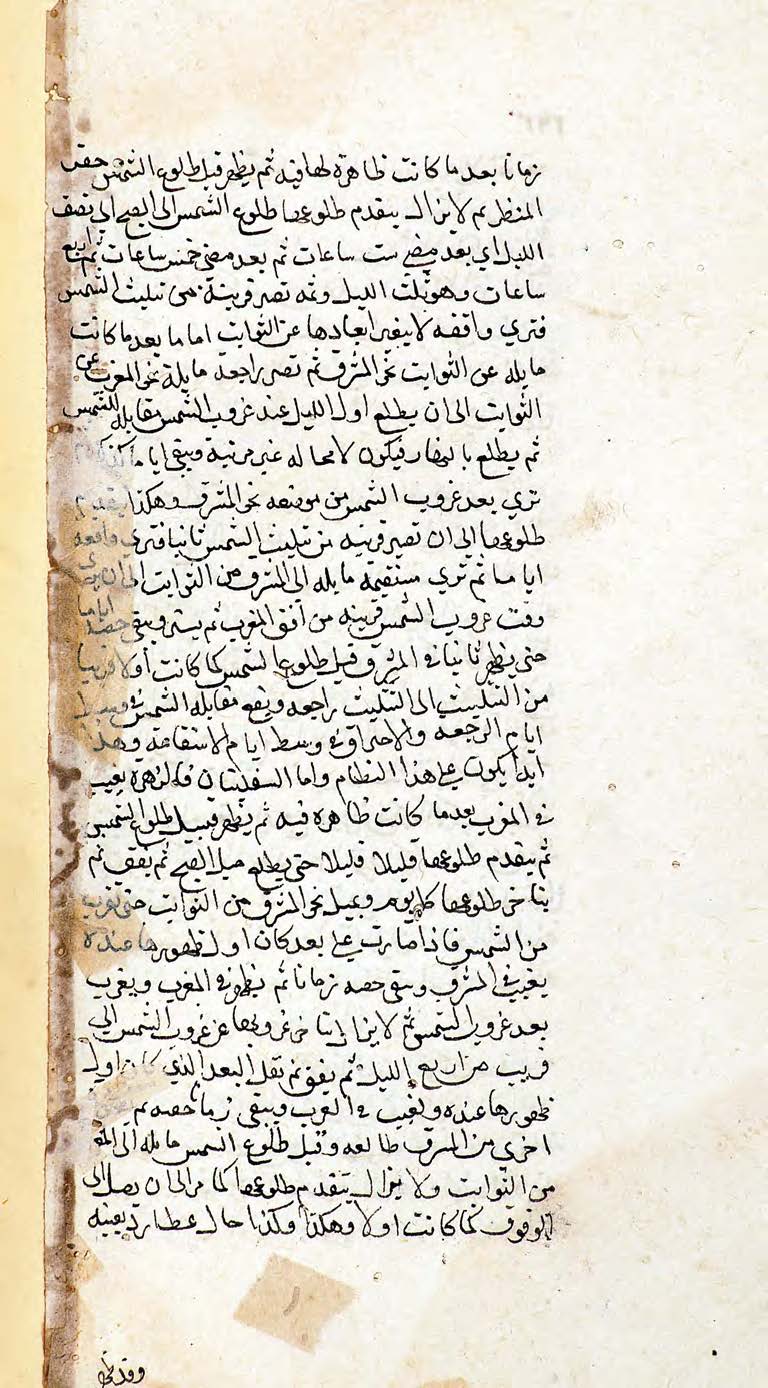 زمانا بعد ما كانت ظاهرة لها فيه ثم يظهر قبل طلوع الشمس
المنظر ثم لا يزال يتقدم طلوعها طلوع الشمس الى الصبح الى نصف
الليل اي بعد مضي ست ساعات ثم بعد مضي خمس ساعات ثم اربع
ساعات وهو ثلث الليل وثمه تصير قريبة من تثليث الشمس
فتري واقفه لا يتغير ابعادها عن الثوابت اما ما بعد ما كانت
مايله عن الثوابت نحو المشرق ثم تصير راجعه مايلة نحو المغرب عن
الثوابت الى ان يطلع اول الليل عند غروب الشمس مقابله للشمس
ثم يطلع بالنهار فيكون لا محاله غير مرئية ويبقى اياما
تري بعد غروب الشمس من موضعه نحو المشرق وهكذا
طلوعها الى ان تصير قريبه من تثليث الشمس ثانيا فتري واقعه
اياما ثم تري مستقيمه مايله الى المشرق من الثوابت الى ان يري
وقت غروب الشمس قريبه من افق المغرب ثم يستر ويبقي اياما
حتى يظهر ثانيا في المشرق قبل طلوع الشمس كما كانت أولا
من التثليث الى التثليث راجعه ويقع مقابله الشمس في وسط
ايام الرجعه والاحتراق في وسط ايام الاستقامة وهذا
ابدا يكون على هذا النظام واما السفليتان فالزهره يغيب
في المغرب بعد ما كانت ظاهره فيه ثم يظهر قبيل طلوع الشمس
ثم يتقدم طلوعها قليلا قليلا حتى يطلع قبل الصبح ثم يقف ثم
يتاخر طلوعها كل يوم ويميل نحو المشرق من الثوابت حتى تقرب
من الشمس فاذا صارت على بعد كان اول ظهورها عنده
يغيب في المشرق ويبقى خفيه زمانا ثم يظهر في المغرب ويغرب
بعد غروب الشمس ثم لا يزال يتاخر غروبها عن غروب الشمس الى
قريب من اربع الليل ثم يقف ثم تقل البعد الذي كان اول
ظهورها عنده وتغيب في الغرب ويبقى زمانا خفيه ثم
اخري من المشرق طالعه وقبل طلوع الشمس مايله الى
من الثوابت ولا يزال يتقدم طلوعها كما مر الى ان يصل الى
الوقوف كما كانت اولا وهكذا وكذا حال عطارد بعينه
وقد